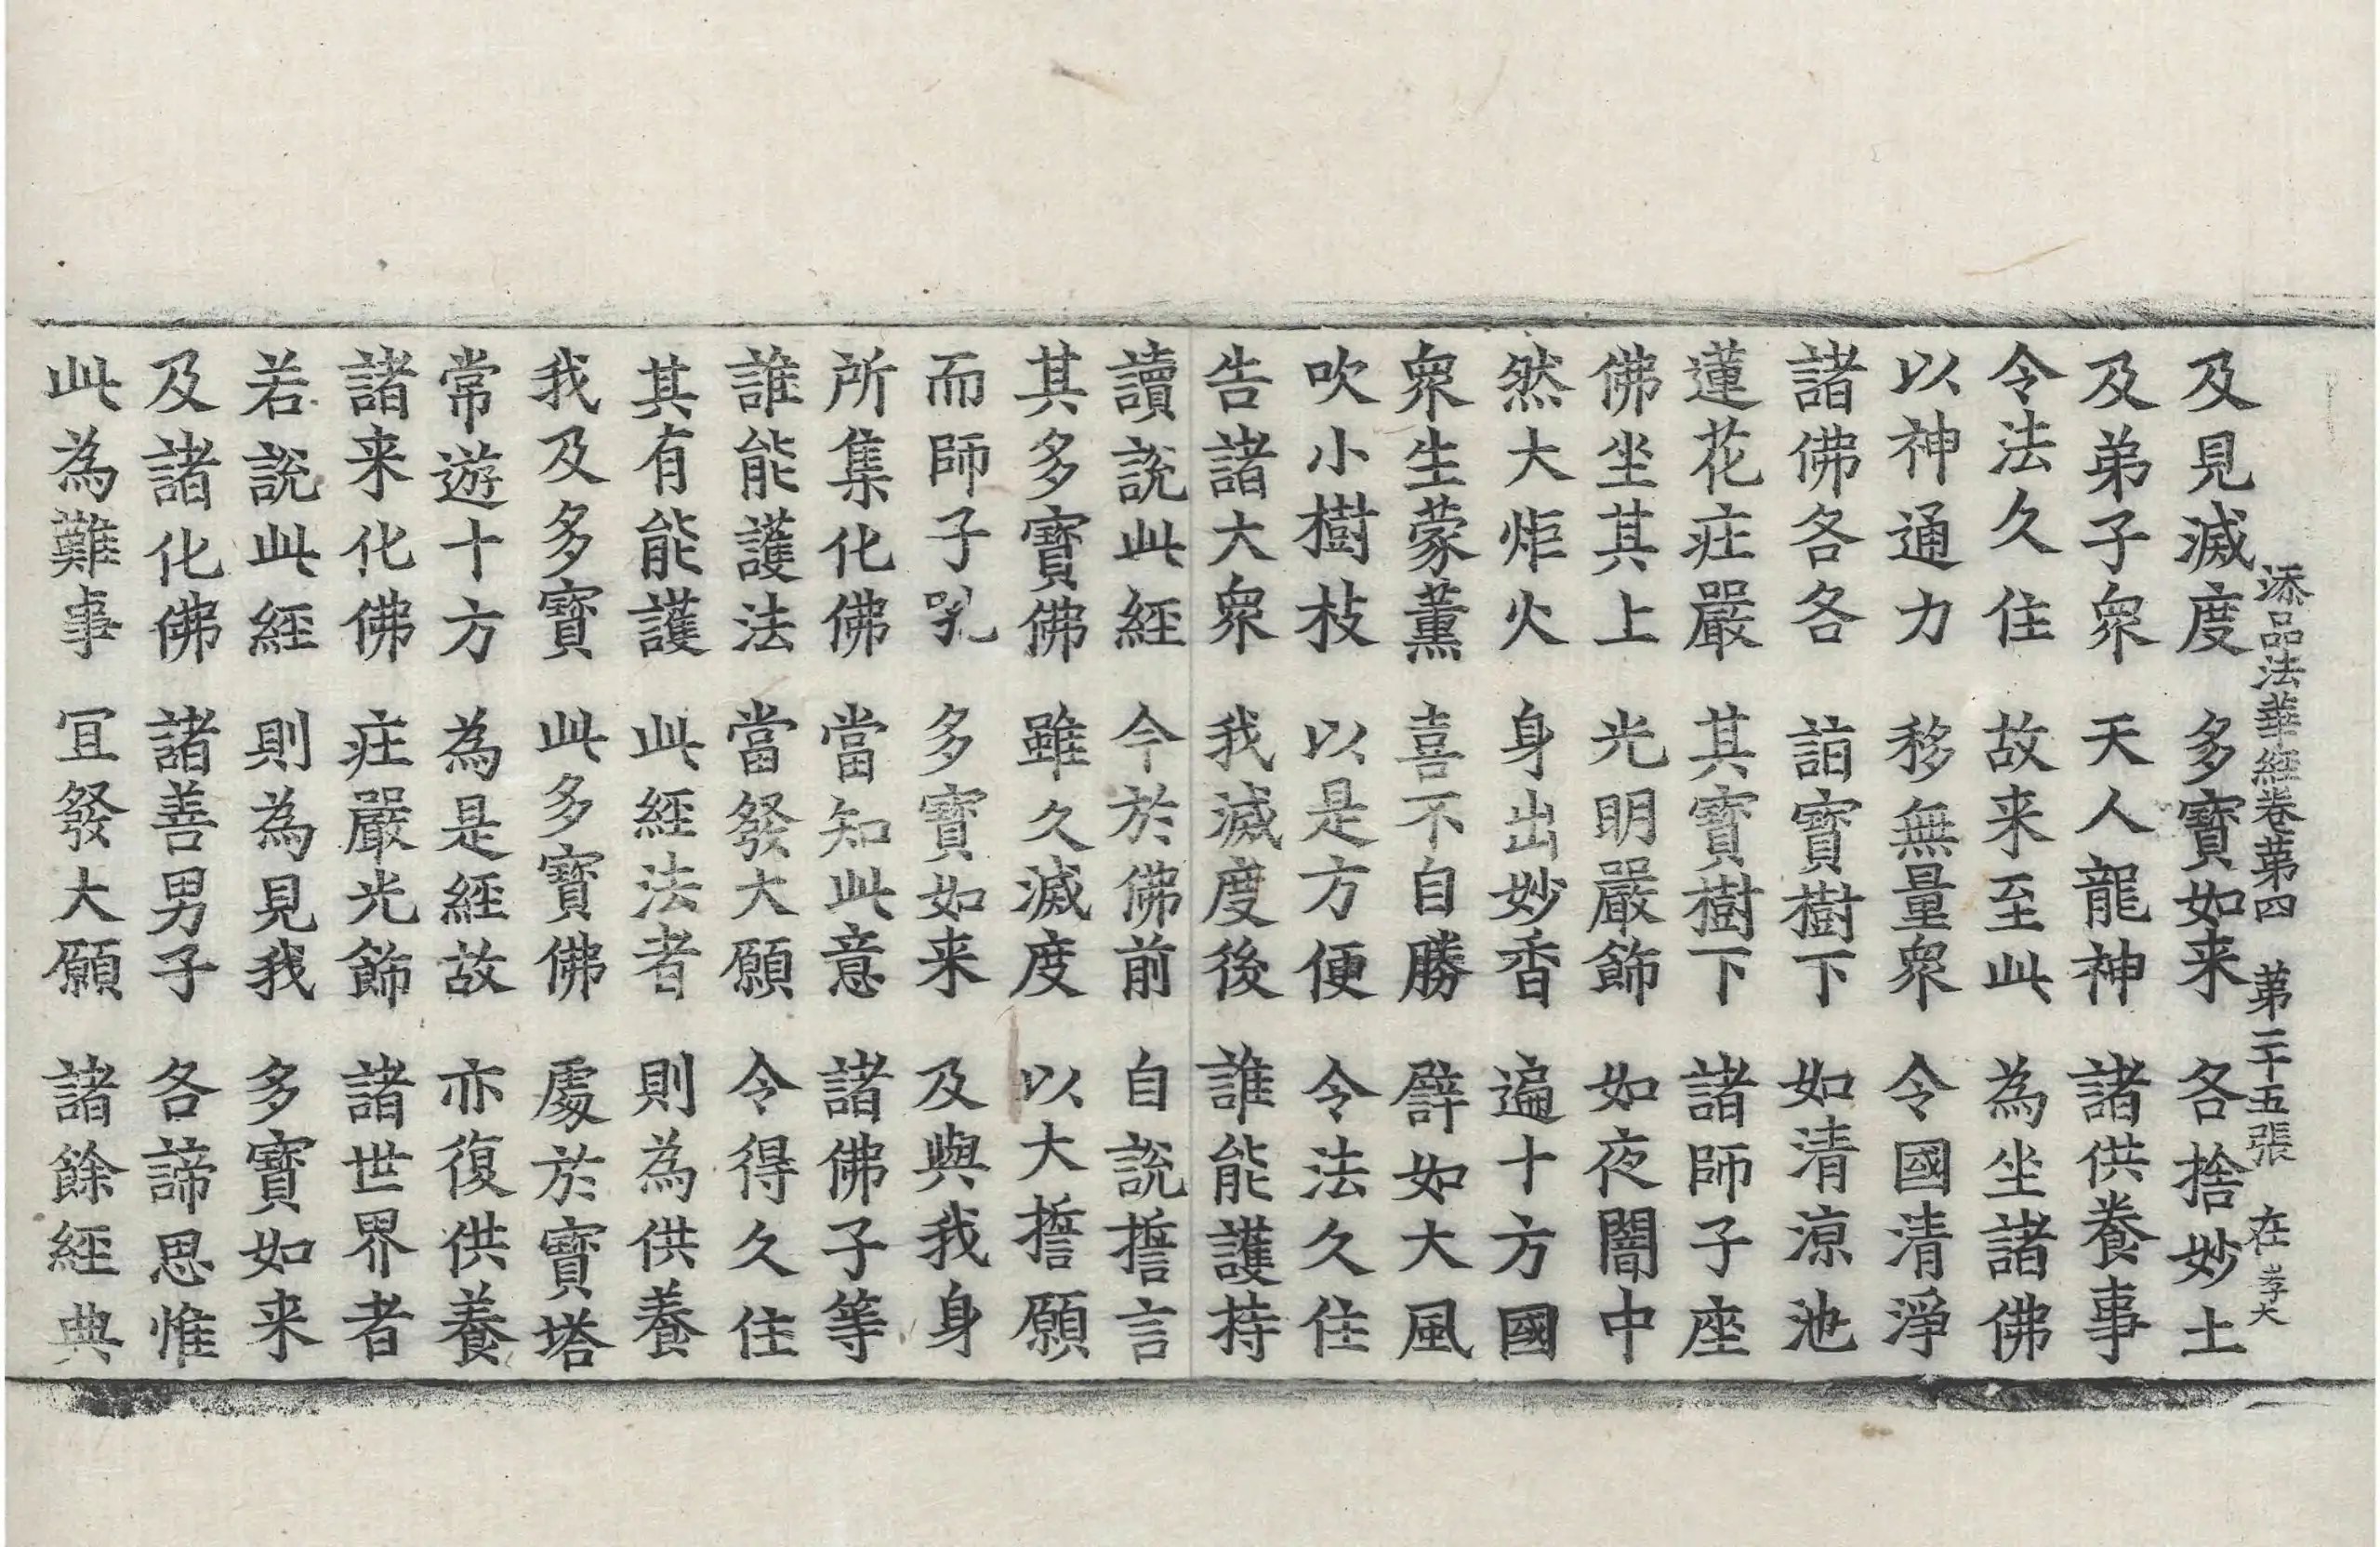 添品法華經卷第四　第二十五張　在　孝大
及見滅度　多寶如来　各捨妙土
及弟子衆　天人龍神　諸供養事
令法久住　故来至此　為坐諸佛
以神通力　移無量衆　令國清淨
諸佛各各　詣寶樹下　如清涼池
蓮花庄嚴　其寶樹下　諸師子座
佛坐其上　光明嚴飾　如夜闇中
然大炬火　身出妙香　遍十方國
衆生蒙薰　喜不自勝　譬如大風
吹小樹枝　以是方便　令法久住
告諸大衆　我滅度後　誰能護持
讀說此經　今於佛前　自說誓言
其多寶佛　雖久滅度　以大誓願
而師子吼　多寶如来　及與我身
所集化佛　當知此意　諸佛子等
誰能護法　當發大願　令得久住
其有能護　此經法者　則為供養
我及多寶　此多寶佛　處於寶塔
常遊十方　為是經故　亦復供養
諸来化佛　庄嚴光飾　諸世界者
若說此經　則為見我　多寶如来
及諸化佛　諸善男子　各諦思惟
此為難事　冝發大願　諸餘經典